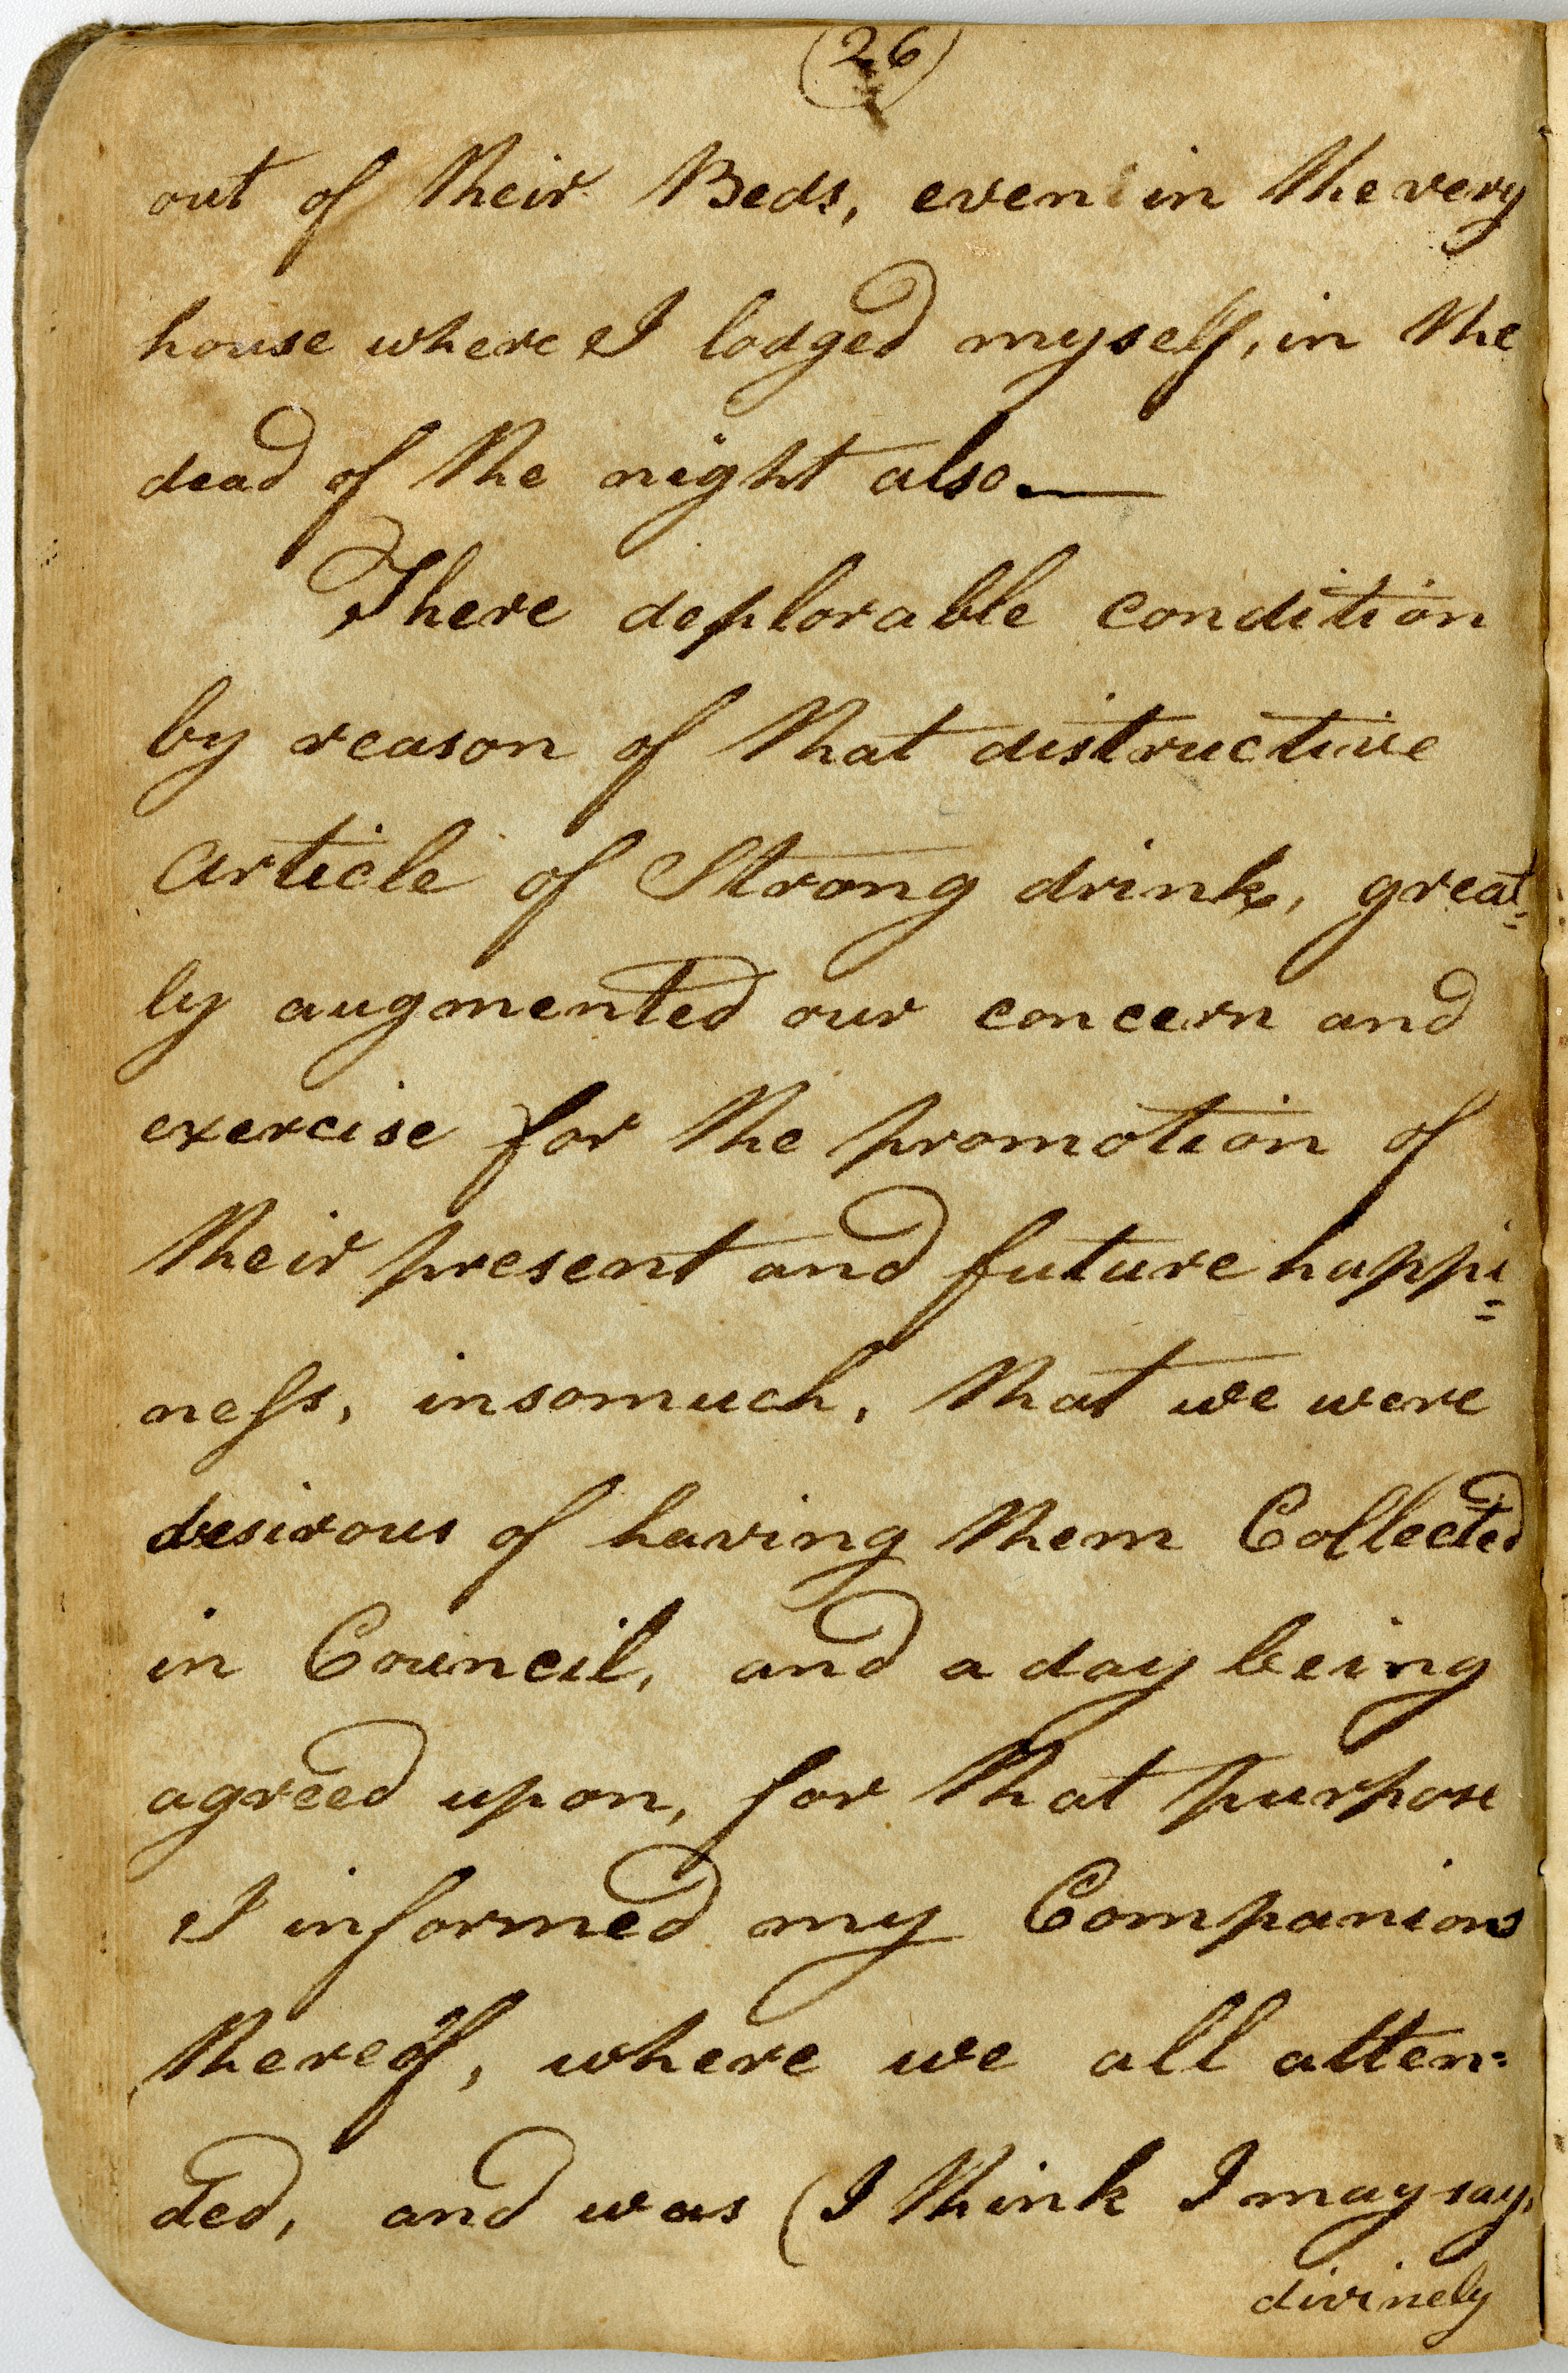 (26)
out of their Beds, even in the very
house where I lodged myself, in the
dead of the night also.—
There deplorable condition
by reason of that distructive
article of Strong drink, great=
ly augmented our concern and
exercise for the promotion of
their present and future happi=
ness, insomuch, that we were
desirous of having them Collected
in Council, and a day being
agreed upon, for that purpose
I informed my Companions
thereof, where we all atten=
ded, and was (I think I may say,
divinely